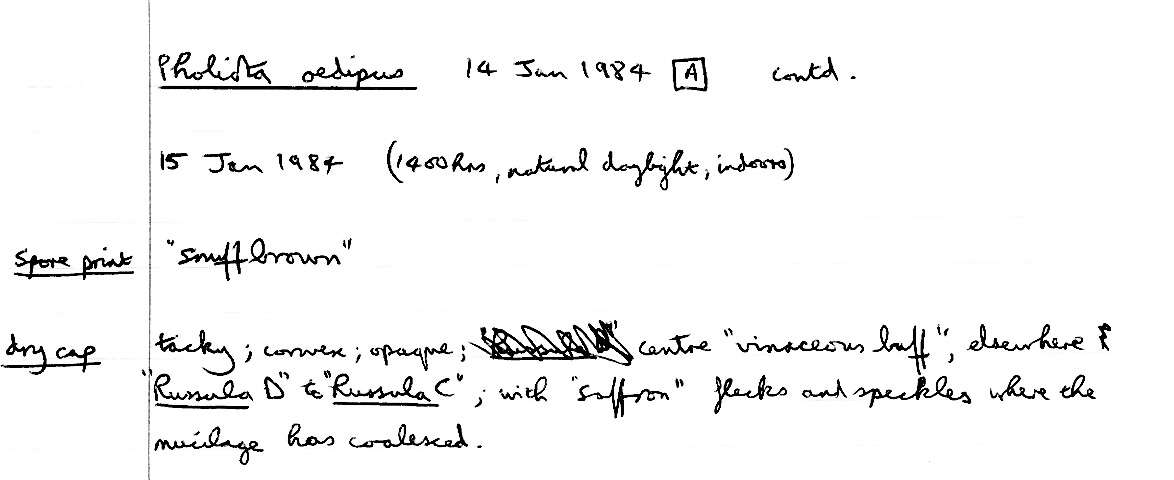 Pholiota oedipus 14 Jan 1984 A contd.
15 Jan 1984 (1400hrs, natural daylight, indoors)
Spore print "snuff brown"
dry cap tacky; convex; opaque; centre "vinaceous buff", elsewhere
"Russula D" to "Russula C"; with "saffron" flecks and speckles where the
mucilage has coalesced.